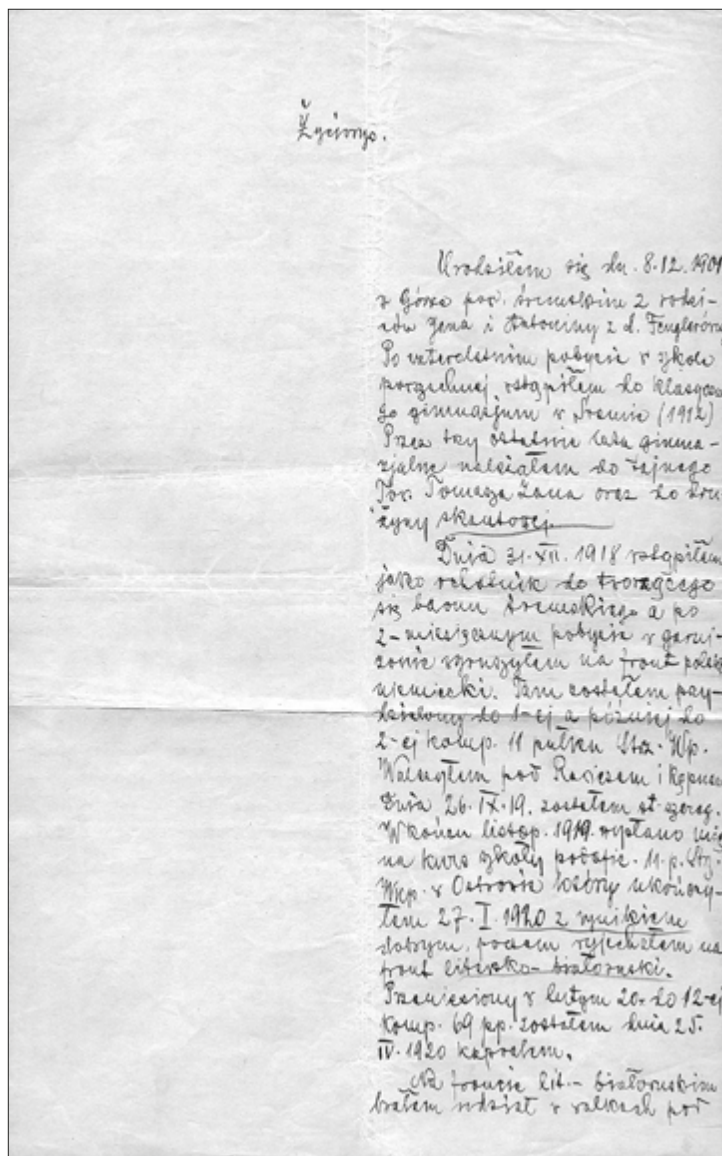 Życiorys.
Urodziłem się dn. 8.12.1901
w Górze pow. śremskim z rodzi-
ców Jana i Antoniny z d. Fenglerów
Po czteroletnim pobycie w szkole
powszechnej wstąpiłem do klasyczne
go gimnazjum w Śremie (1912)
Przez trzy ostatnie lata gimna-
zjalne należałem do tajnego
Tow. Tomasza Zana oraz do dru
żyny skautowej.
Dnia 31.XII.1918 wstąpiłem
jako ochotnik do tworzącego
się baonu śremskiego a po
2-miesięcznym pobycie w garni-
zonie wyruszyłem na front polsko
niemiecki. Tam zostałem przy-
dzielony do 1-ej a później do
2-ej komp. 11 pułku Strz. Wp.
Walczyłem pod i Kępnem
Dnia 26.IX.19. zostałem st. szereg.
Wkońcu listop. 1919 wysłano mię
na kurs szkoły podofic. 11. p. Strz.
Wlkp. w Ostrowie który ukończy-
łem 27.I.1920 z wynikiem
dobrym, poczem wyjechałem na
front litewsko-białoruski.
Przeniesiony w lutym 20. do 12-ej
komp. 69 pp. zostałem dnia 25.
IV.1920 kapralem.
Na froncie lit.-białoruskim
brałem udział w walkach pod